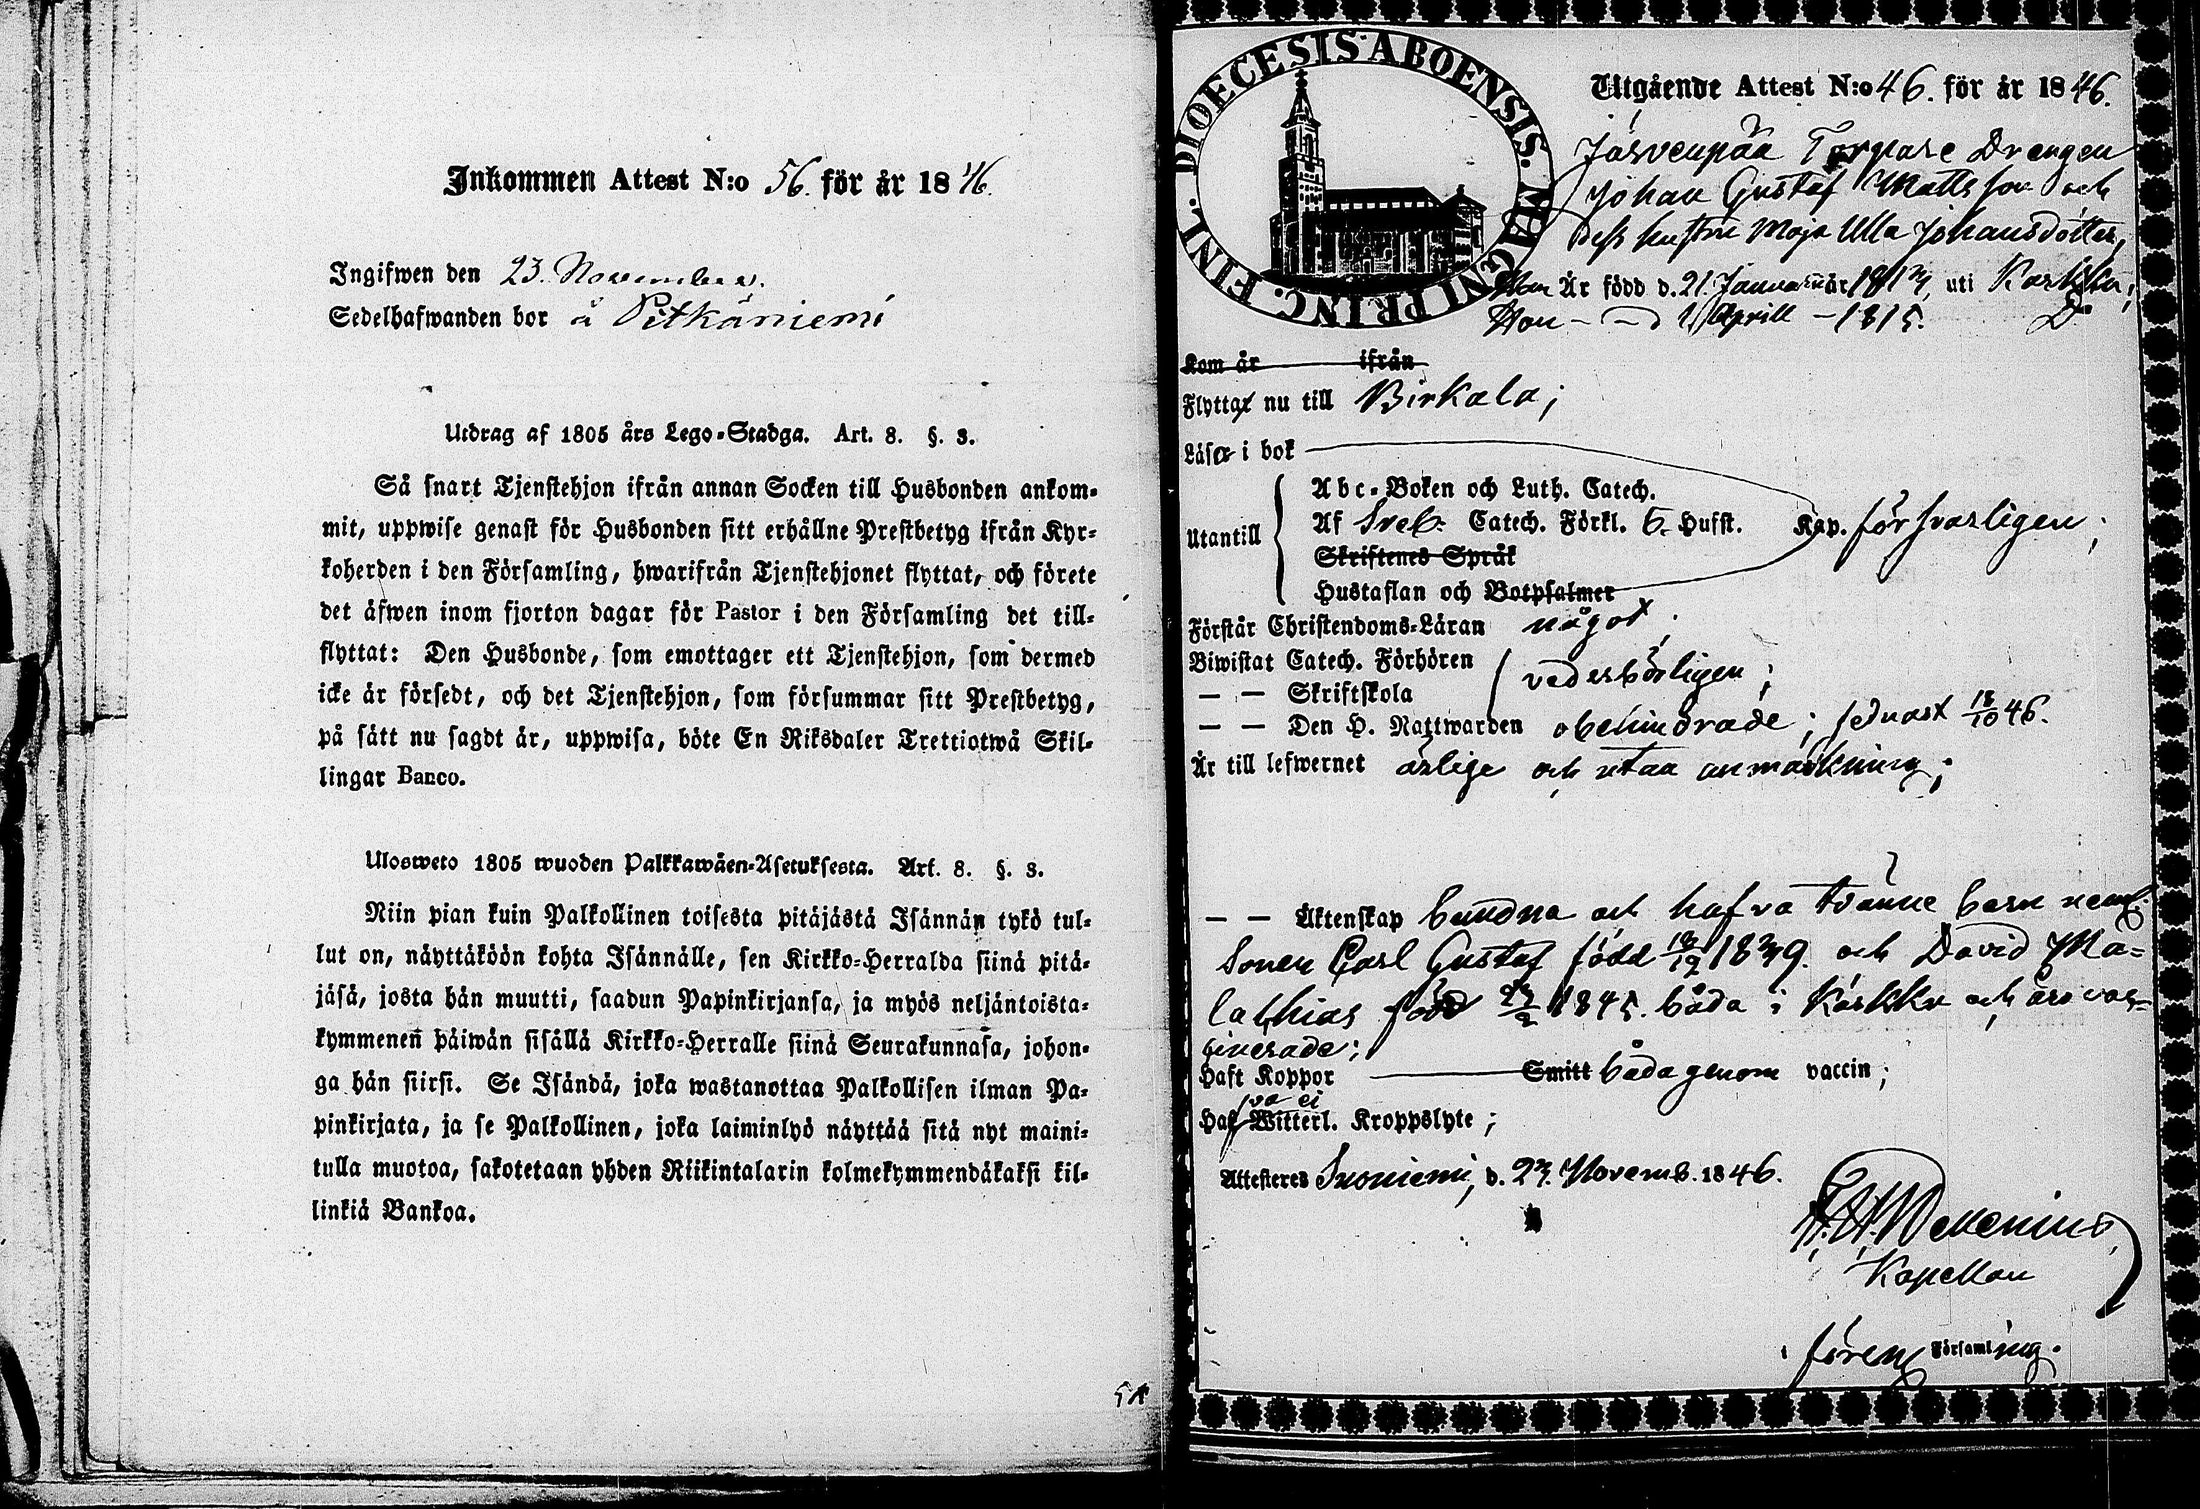 Inkommen Attest N:o 56. för år 1846.
Ingifwen den 23. November.
Sedelhafwanden bor å Pitkäniemi
Utdrag af 1805 års Lego-Stadga. Art. 8. §. 3.
Så snart Tjenstehjon ifrån annan Socken till Husbonden ankom-
mit, uppwise genast för Husbonden sitt erhållne Prestbetyg ifrån Kyr-
koherden i den Församling, hwarifrån Tjenstehjonet flyttat, och förete
det äfwen inom fjorton dagar för Pastor i den Församling det till-
flyttat: Den Husbonde, som emottager ett Tjenstehjon, som dermed
icke är försedt, och det Tjenstehjon, som försummar sitt Prestbetyg,
på sätt nu sagdt är, uppwisa, böte En Riksdaler Trettiotwå Skil-
lingar Banco.
Ulosweto 1805 wuoden Palkkawäen-Asetuksesta. Art. 8. §. 3.
Niin pian kuin Palkollinen toisesta pitäjästä Isännän tykö tul-
lut on, näyttäköön kohta Isännälle, sen Kirkko-Herralda siinä pitä-
jäsä, josta hän muutti, saadun Papinkirjansa, ja myös neljäntoista-
kymmenen päiwän sisällä Kirkko-Herralle siinä Seurakunnasa, johon-
ga hän siirsi. Se Isändä, joka wastanottaa Palkollisen ilman Pa-
pinkirjata, ja se Palkollinen, joka laiminlyö näyttää sitä nyt maini-
tulla muotoa, sakotetaan yhden Riikintalarin kolmekymmendäkaksi kil-
linkiä Bankoa.
DIOECESIS ABOENSIS. MAGNI PRINC. FINL.
Utgående Attest N:o 46. för år 1846.
Järvenpää Torpare Drengen
Johan Gustaf Mattsson och
dess hustru Maja Ulla Johansdotter,
Han Är född d. 21. Januarii år 1813, uti Karkku;
Hon – – d 1 Aprill – 1815. D:o
Kom år ifrån
Flytta nu till Birkala;
Läsa i bok
Abc-Boken och Luth. Catech.
Utantill Af Sveb. Catech. Förkl. 6. Hufst. Kap. försvarligen;
Skriftenes Språk
Hustaflan och Botpsalmer
Förstår Christendoms-Läran något;
Biwistat Catech. Förhören vederbörligen;
— — Skriftskola
— — Den H. Nattwarden obehindrade; sednast 18/10 46.
Är till lefwernet ärlige och utan anmärkning;
— — Äktenskap bundna och hafva tvänne barn neml.
Sonen Carl Gustaf född 18/12 1839. och David Ma-
lathias född 23/2 1845. båda i Karkku och äro vac-
cinerade;
Haft Koppor Smitt båda genom vaccin;
Hafva ei Witterl. Kroppslyte;
Attesteres Suoniemi, d. 23. Novemb. 1846.
Kapellan
i fören. Församling.